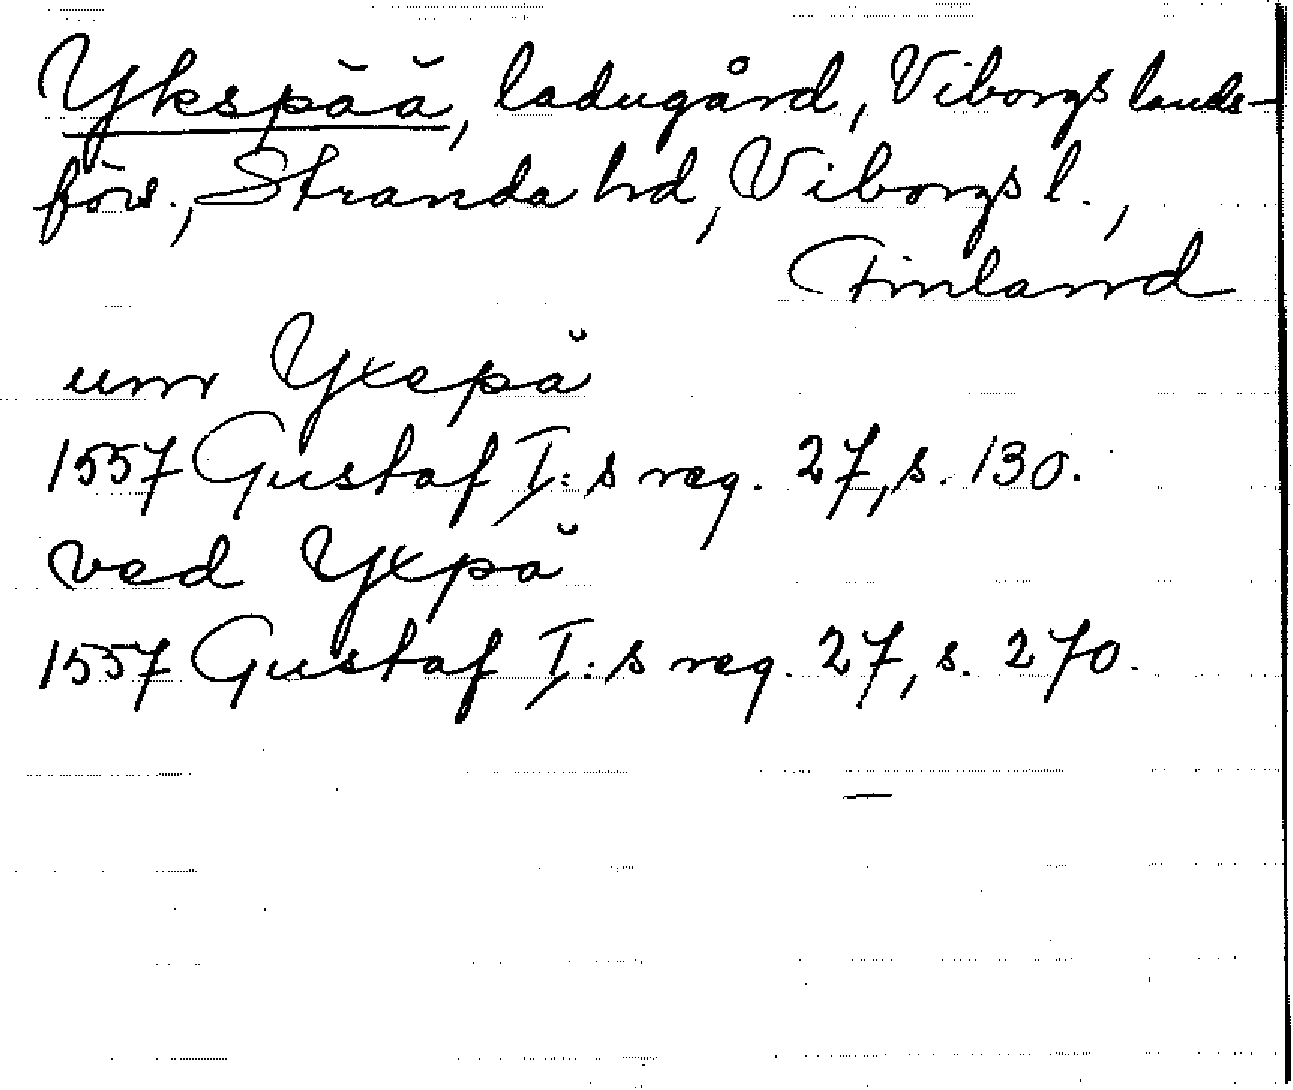 Ykspää, ladugård, Viborgs lands-
förs., Stranda hd, Viborgs l.,
Finland
um Yxepä
1557 Gustaf I:s reg. 27, s. 130.
ved Yxpä
1557 Gustaf I:s reg. 27, s. 270.